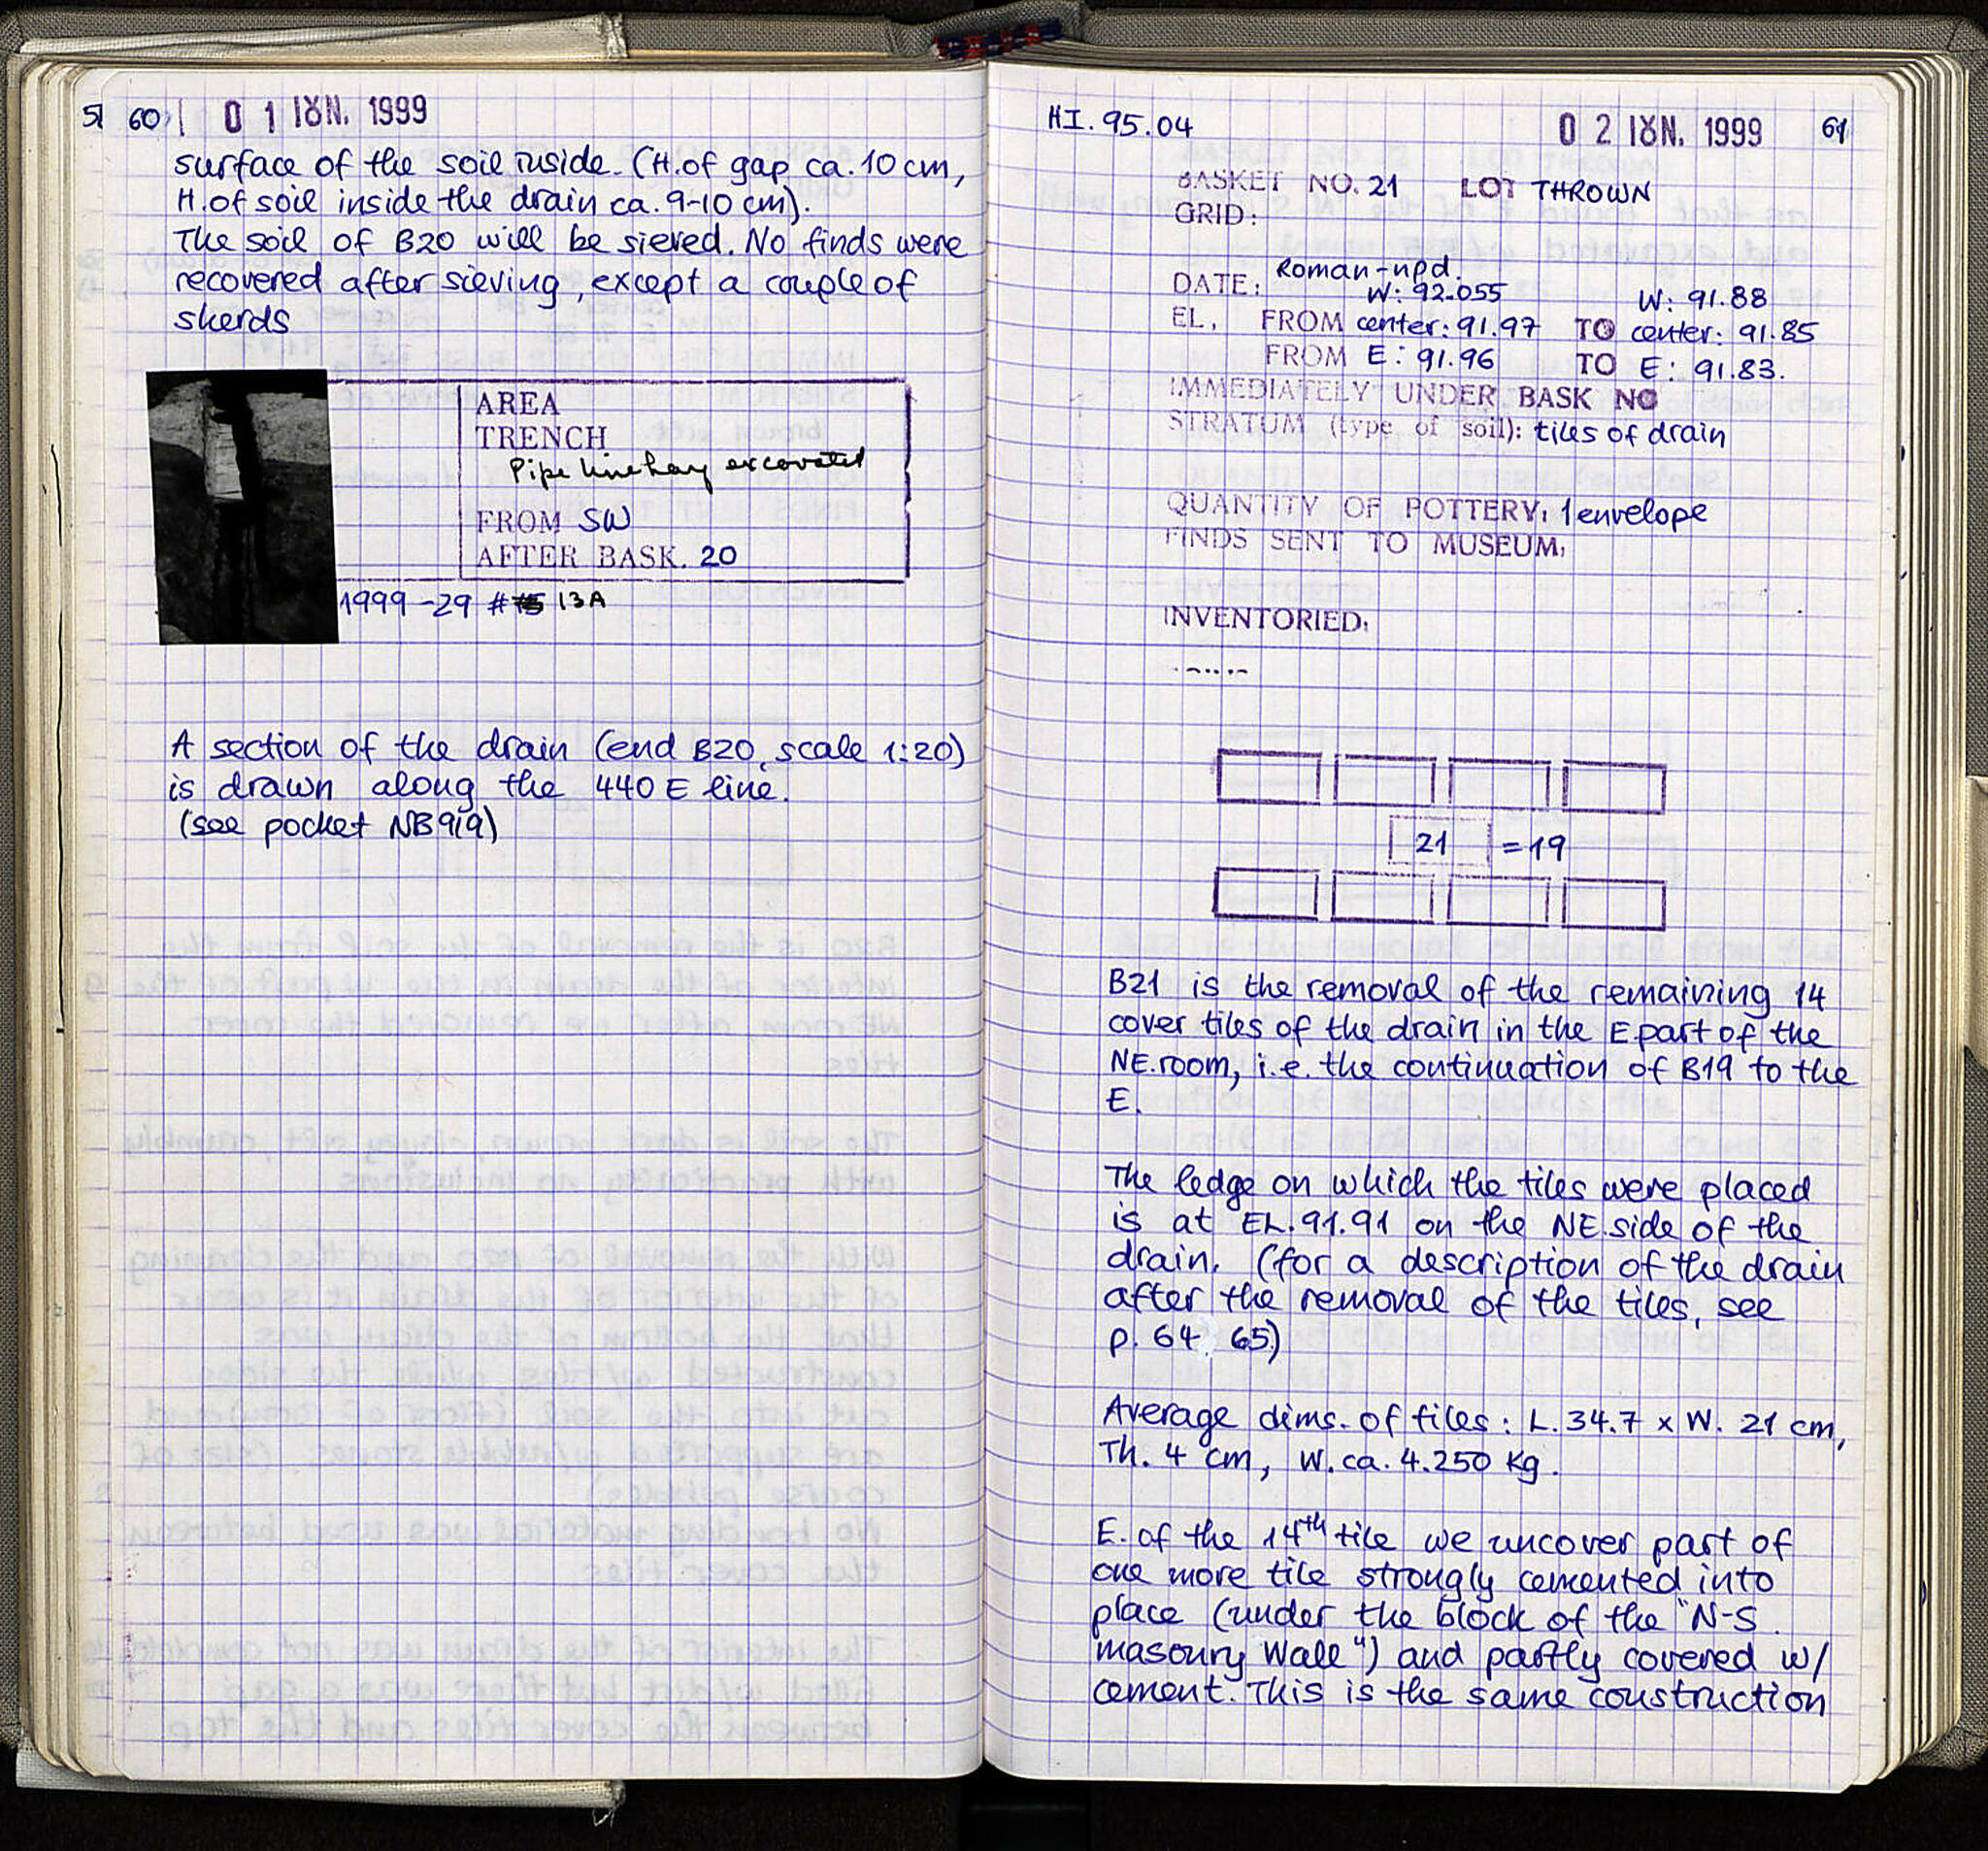 60
01 ΙΟΥΝ. 1999
surface of the soil inside. (H. of gap ca. 10 cm,
H. of soil inside the drain ca. 9-10 cm).
The soil of B20 will be sieved. No finds were
recovered after sieving, except a couple of
sherds
AREA
TRENCH
Pipe line being excavated
FROM SW
AFTER BASK. 20
1999-29 # 13A
A section of the drain (end B20, scale 1:20)
is drawn along the 440 E line.
(see pocket NB 9/9)
HI. 95.04
02 ΙΟΥΝ. 1999
61
BASKET NO. 21 LOT THROWN
GRID:
Roman-npd.
DATE:
W: 92.055 W: 91.88
EL, FROM center: 91.97 TO center: 91.85
FROM E: 91.96 TO E: 91.83.
IMMEDIATELY UNDER BASK NO
STRATUM (type of soil): tiles of drain
QUANTITY OF POTTERY: 1 envelope
FINDS SENT TO MUSEUM:
INVENTORIED:
21 = 19
B21 is the removal of the remaining 14
cover tiles of the drain in the E part of the
NE. room, i.e. the continuation of B19 to the
E.
The ledge on which the tiles were placed
is at EL. 91.91 on the NE. side of the
drain. (for a description of the drain
after the removal of the tiles, see
p. 64, 65)
Average dims. of tiles: L. 34.7 x W. 21 cm,
Th. 4 cm, W. ca. 4.250 Kg.
E. of the 14th tile we uncover part of
one more tile strongly cemented into
place (under the block of the "N-S
masonry Wall") and partly covered w/
cement. This is the same construction